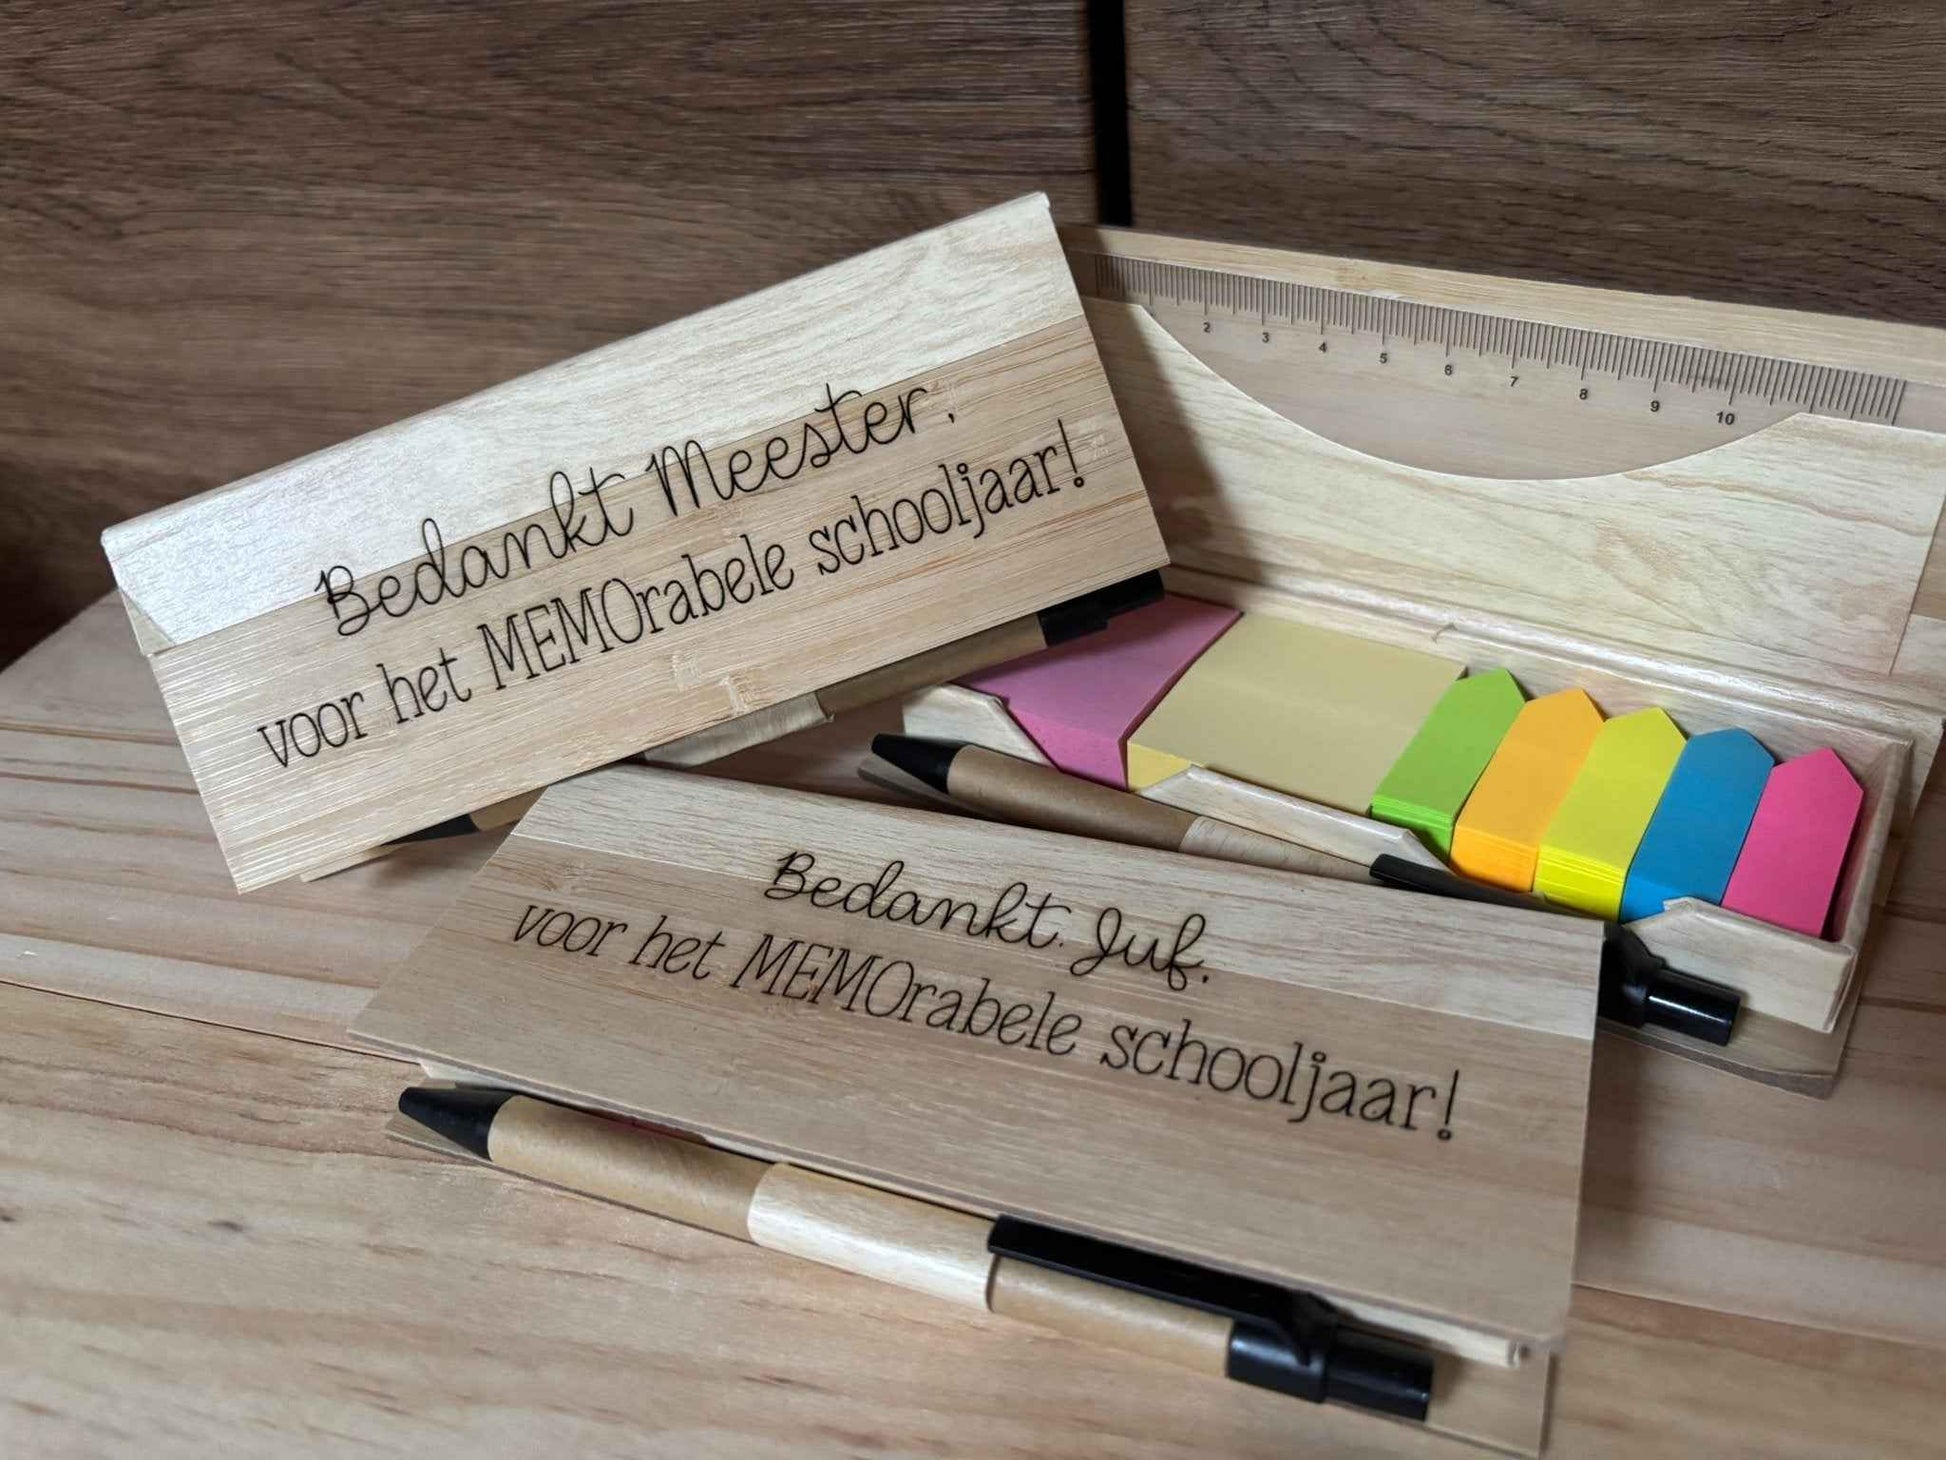 Bedankt Meester,
voor het MEMOrabele schooljaar!
2 3 4 5 6 7 8 9 10
Bedankt Juf,
voor het MEMOrabele schooljaar!